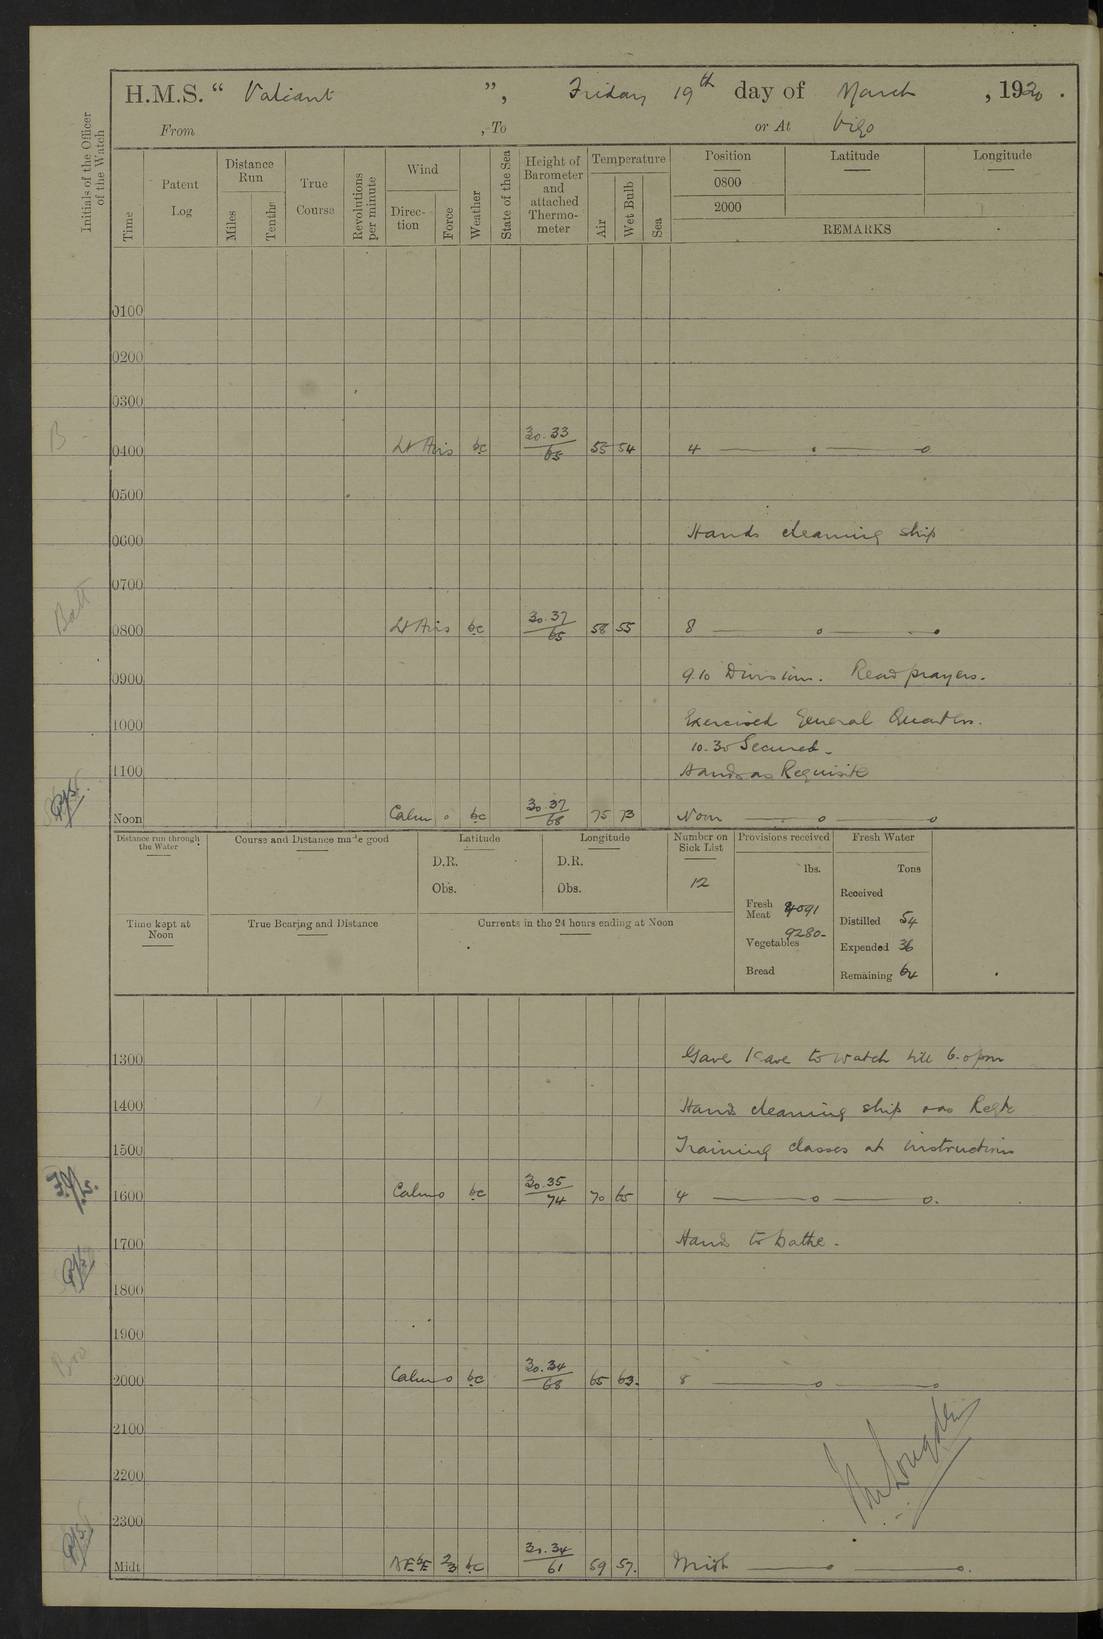 H.M.S. “ Valiant ”, Friday 19th day of March , 1920 .
From , To or At Vigo
Initials of the Officer of the Watch
Time
Patent Log
Distance Run
Miles
Tenths
True Course
Revolutions per minute
Wind
Direction
Force
Weather
State of the Sea
Height of Barometer and attached Thermometer
Temperature
Air
Wet Bulb
Sea
Position Latitude Longitude
0800
2000
REMARKS
0100
0200
0300
0400 Lt Airs bc 30.33/65 55 54 4
0500
Hands cleaning ship
0600
0700
0800 Lt Airs bc 30.37/65 58 55 8
9.10 Divisions. Read prayers.
0900
Exercised General Quarters.
1000
10.30 Secured
Hands as Requisite
1100
Noon Calm 0 bc 30.37/68 75 73 Noon
Distance run through the Water
Course and Distance made good
Latitude
D.R.
Obs.
Longitude
D.R.
Obs.
Number on Sick List
12
Provisions received
lbs.
Fresh Meat 4091
Vegetables 9280
Bread
Fresh Water
Tons
Received
Distilled 54
Expended 36
Remaining 64
Time kept at Noon
True Bearing and Distance
Currents in the 24 hours ending at Noon
Gave leave to watch till 6.0 pm
1300
Hands cleaning ship
1400
Training classes at instructions
1500
1600 Calm 0 bc 30.35/74 70 65 4
Hands to bathe.
1700
1800
1900
2000 Calm 0 bc 30.34/68 65 63. 8
2100
2200
2300
Midt. NEbE 2/3 bc 30.34/61 59 57. Midt